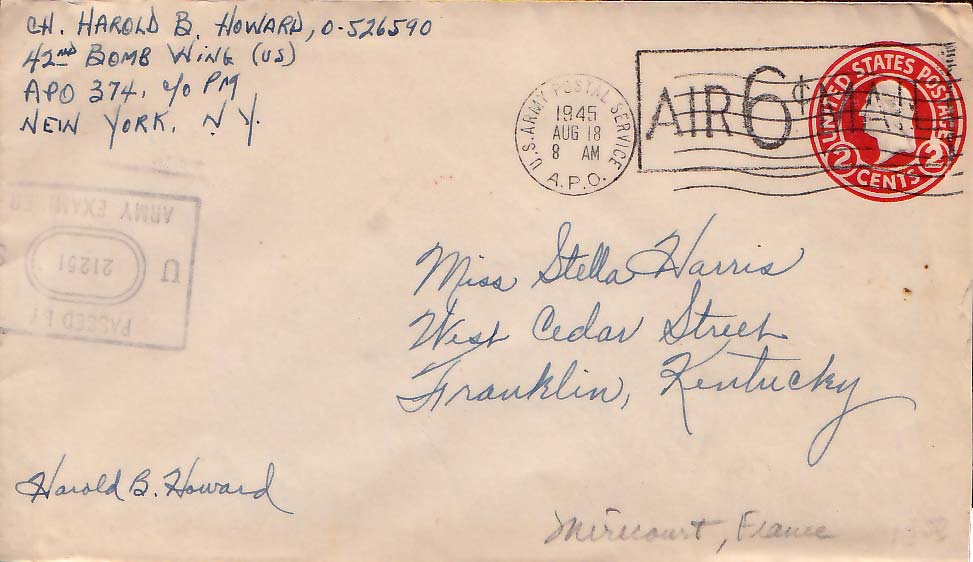 CH. HAROLD B. HOWARD, O-526590
42nd BOMB WING (US)
APO 374, c/o PM
NEW YORK, N.Y.
U.S. ARMY POSTAL SERVICE
1945
AUG 18
8 AM
A.P.O.
AIR 6¢ MAIL
UNITED STATES POSTAGE
2 CENTS 2
PASSED BY
U 21251 S
ARMY EXAMINER
Miss Stella Harris
West Cedar Street
Franklin, Kentucky
Harold B. Howard
Mirecourt, France